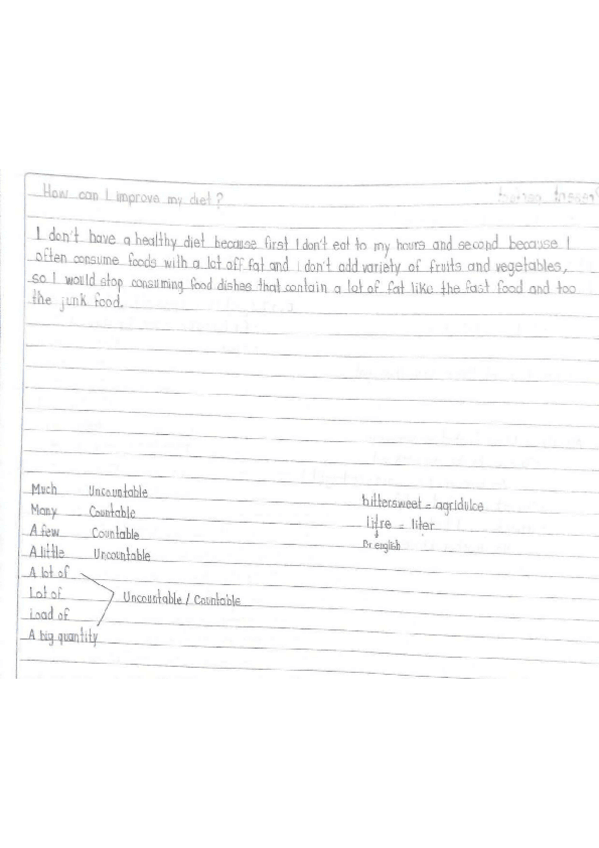 How can I improve my diet?
I don't have a healthy diet because first I don't eat to my hours and second because I
often consume foods with a lot off fat and i don't add variety of fruits and vegetables,
so I would stop consuming food dishes that contain a lot of fat like the fast food and too
the junk food.
Much Uncountable
Many Countable
A few Countable
A little Uncountable
A lot of
Lot of
Load of
A big quantity
Uncountable / Countable
bittersweet = agridulce
litre = liter
Br english